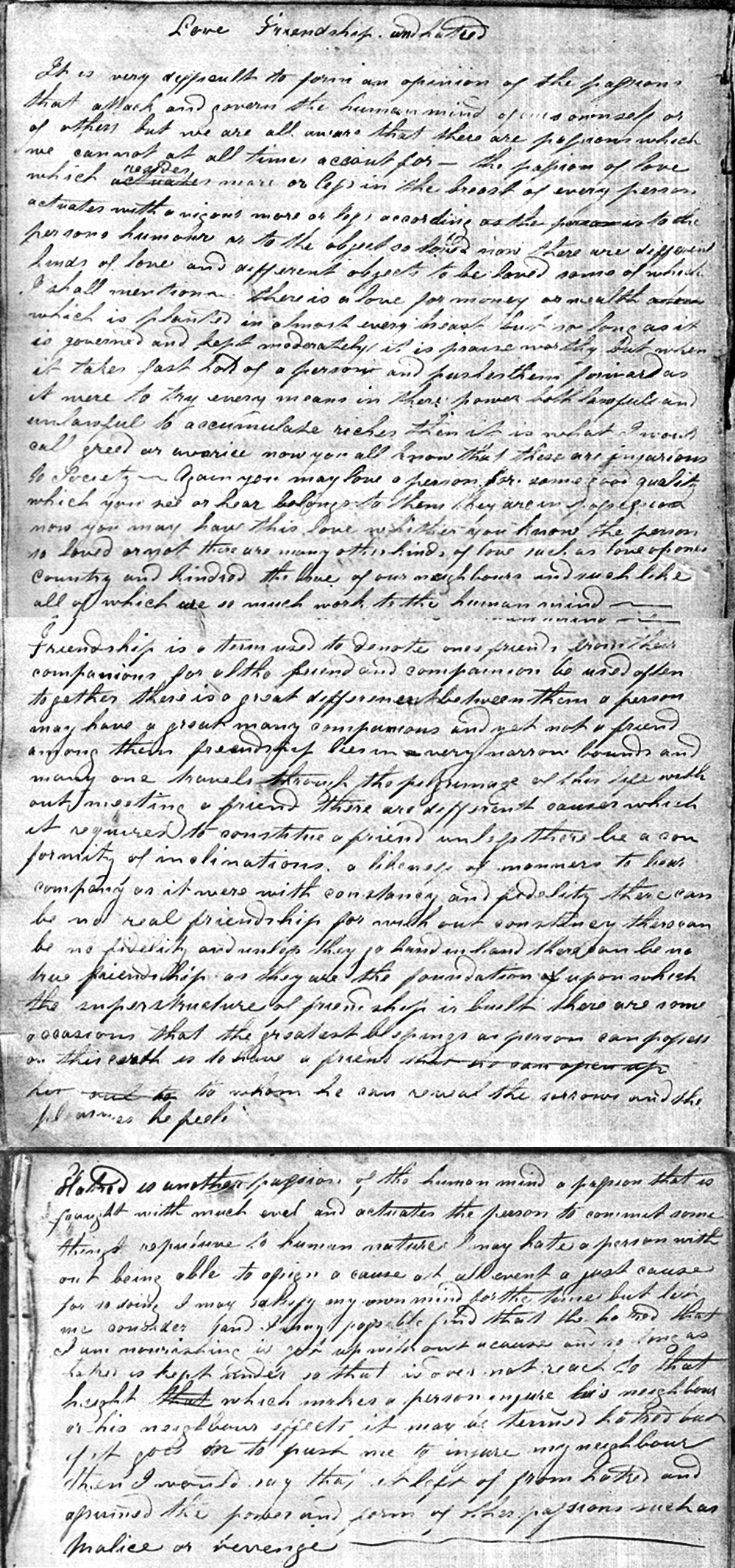 Love Friendship and hatred
It is very difficult to form an opinion of the passions
that attack and govern the human mind of ones ownself or
of others but we are all aware that there are passions which
we cannot at all times account for — the passion of love
which resides more or less in the breast of every person
actuates with a vigour more or less according as the person is to the
persons humour or to the object so loved now there are different
kinds of love and different objects to be loved some of which
I shall mention there is a love for money or wealth
which is planted in almost every breast but so long as it
is governed and kept moderately it is praise worthy but when
it takes fast hold of a person and pushes them forward as
it were to try every means in there power both lawfull and
unlawful to accumulate riches then it is what I would
call greed or avarice now you all know that these are injurious
to Society — Again you may love a person for some good quality
which you see or hear belongs to them they are in possession
now you may have this love whether you know the person
so loved or not there are many other kinds of love such as love of ones
country and kindred the love of our neighbours and such like
all of which are so much work to the human mind —
Friendship is a term used to denote ones friends from their
companions for altho friend and companion be used often
together there is a great different between them a person
may have a great many companions and yet not a friend
among them friendship lies in a very narrow bounds and
many one travels through the pilgrimage of this life with
out meeting a friend there are different causes which
it requires to constitue a friend unless there be a con
formity of inclinations a likeness of manners to bear
company as it were with constancy and fidelity there can
be no real friendship for with out constancy there can
be no fidelity and unless they go hand in hand there can be no
true friendship as they are the foundation of upon which
the superstructure of friendship is built there are some
occasions that the greatest blessings a person can possess
on this earth is to have a friend that he can open up
her to to whom he can reveal the sorrows and the
pleasures he feels
Hatred is another passion of the human mind a passion that is
fraught with much evel and actuates the person to commit some
things repulsive to human nature I may hate a person with
out being able to assign a cause at all event a just cause
for so doing I may satisfy my own mind for the time but let
me consider and I may possible find that the hatred that
I am nourishing is got up without a cause and so long as
hatred is kept under so that it does not reach to that
height that which makes a person injure his neighbour
or his neighbours effects it may be termed hatred but
if it goes on to push me to injure my neighbour
then I would say that it left of from hatred and
assumed the power and form of other passions such as
Malice or revenge —